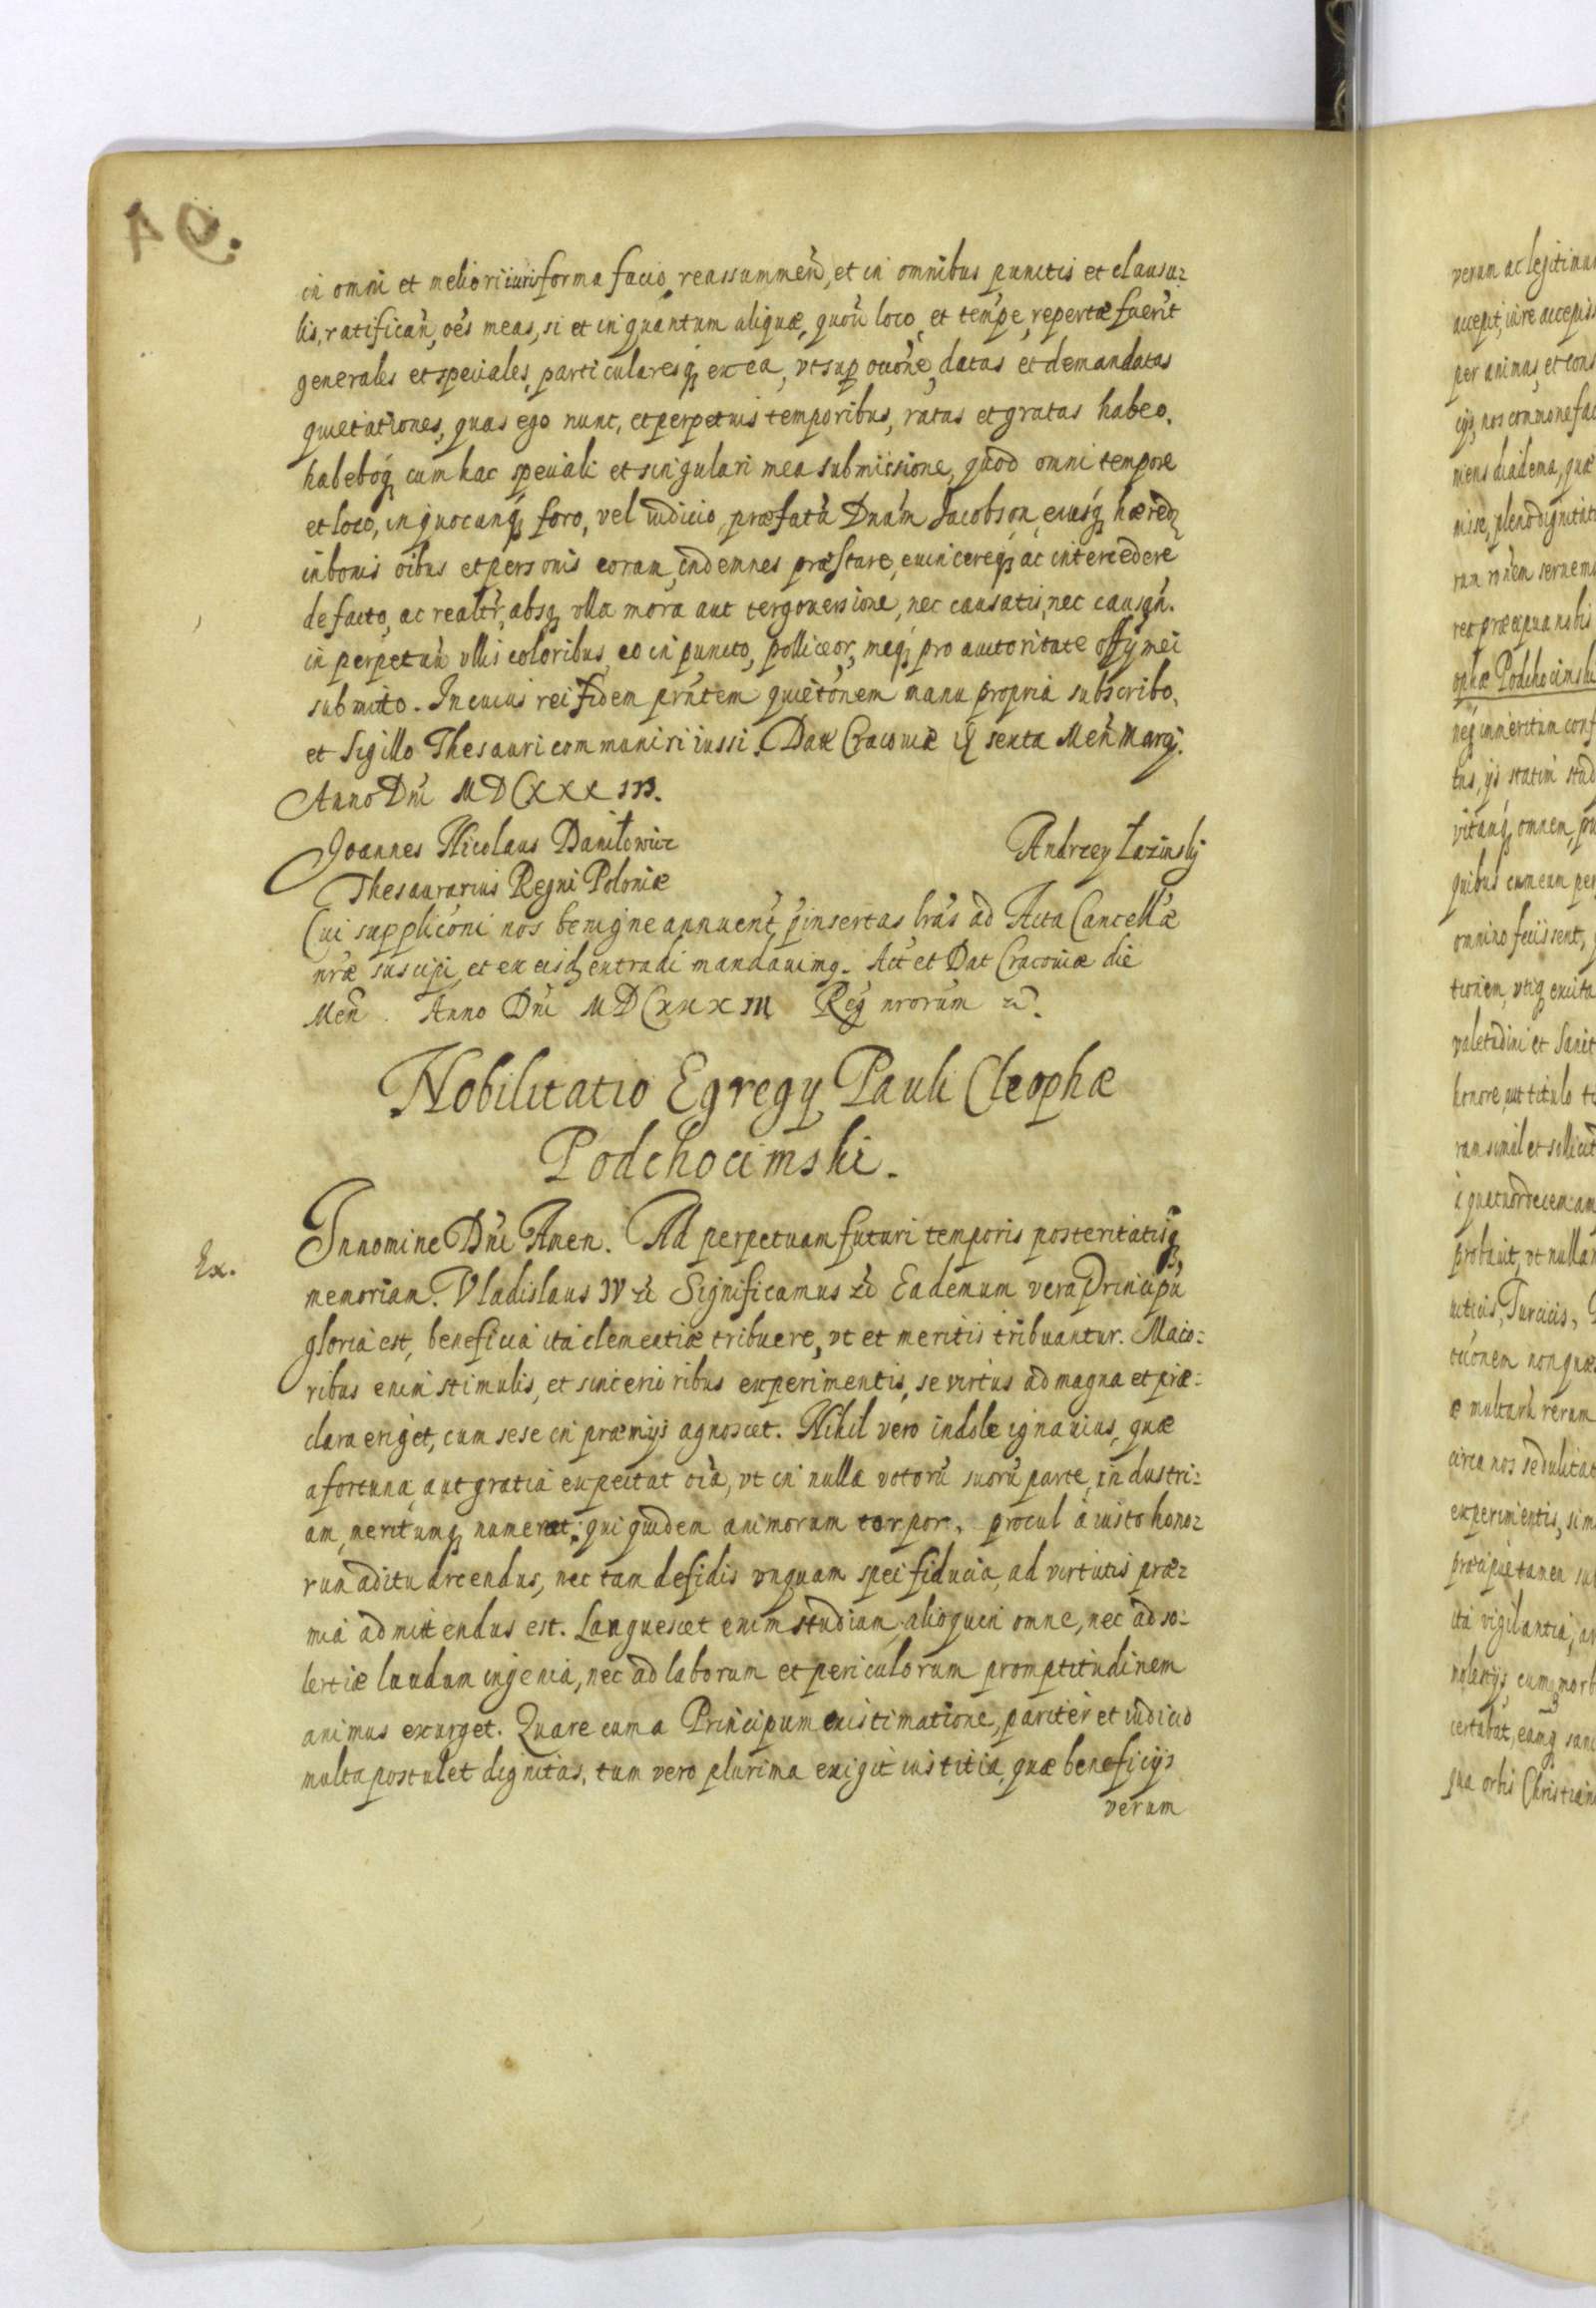 94.
in omni et meliori iuris forma facio, reassummen̄, et in omnibus punctis et clausu:
lis, ratifican̄, oēs meas, si et in quantum aliquæ, quōū loco, et temṕe, repertæ fuer̄t
generales et speciales, particularesq́ȝ ex ea, vt sup occōne, datas et demandatas
quietationes, quas ego nunc, et perpetuis temporibus, ratas et gratas habeo.
habebóqȝ cum hac speciali et singulari mea submissione, quod omni tempore
et loco, in quocunqȝ foro, vel iudicio præfatū Dnūm Jacobson, eiusqȝ hæred
in bonis oībus et personis eorum, indemnes præstare, euincereqȝ ac intercedere
de facto, ac realtr̄, absqȝ vlla mora aut tergouersione, nec causatis, nec causan̄.
in perpetuū vllis coloribus, eo in puncto, polliceor, meqȝ pro auctoritate offij mei
submitto. In cuius rei fidem prn̄tem quietōnem manu propria subscribo,
et Sigillo Thesauri communiri iussi. Datt Cracouiæ sexta Men̄ Marj.
Anno Dnī MDCXXXIII.
Joannes Nicolaus Daniłowicz
Andrzey Łaziński
Thesaurarius Regni Poloniæ
Cui supplicōni nos benigne annuent̄, p̄insertas lrās ad Acta Cancellæ
nrǣ suscipi, et ex eisd extradi mandauimg. Act et Dat Cracouiæ die
Men̄. Anno Dnī MDCXXXIII Reg̃ nrorūm
Nobilitatio Egregij Pauli Cleophæ
Podchocimski.
Ex.
In nomine Dnī Amen. Ad perpetuam futuri temporis posteritatisqȝ
memoriam. Vladislaus IV Significamus Ea demum vera Principū
gloria est, beneficia ita clementiæ tribuere, vt et meritis tribuantur. Maio:
ribus enim stimulis, et sincerioribus experimentis, se virtus ad magna et præ:
clara eriget, cum sese in præmijs agnoscet. Nihil vero indole ignauius, quæ
a fortuna, aut gratia expectat oīa, vt in nulla votorū suorū parte, industri:
am, meritumqȝ numeret: qui quidem animorum torpor, procul à iusto hono:
rum aditu arcendus, nec tam desidis vnquam spei fiducia, ad virtutis præ:
mia admittendus est. Languescet enim studium alioquin omne, nec ad so:
lertiæ laudum ingenia, nec ad laborum et periculorum promptitudinem
animus exurget. Quare cum a Principum existimatione, pariter et iudicio
multa postulet dignitas, tum vero plurima exigit iustitia, quæ beneficijs
verum
verum ac legitimu
accepit, iure accepiss
per animas, et cons
ijs, nos commonefac
mens diadema, quæ
misse, pleno dignitat
rum
rea præcipua nobis
ophæ Podchocimski
neqȝ immeritum conf
tus, ijs statim stud
vitamqȝ omnem, pu
quibus cum eum per
omnino fecissent,
tionem, vtiqȝ excita
valetudini et Sanit
honore, aut titulo
ram simul et sollicit
i quatuordecem am
probauit, vt nullam
Turcicis,
occōnem non quæs
æ multarū rerum
circa nos sedulitat
experimentis, sim
præcipue tamen su
ita vigilantia, a
molestijs, cum morb
certabat, eamqȝ sani
qua orbis Christian